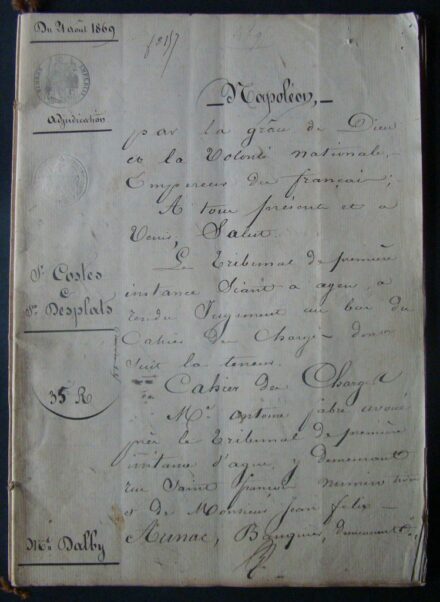 Du 21 août 1869
Adjudication
Sr Costes
&
Sr Desplats
35 R
Me Dalby
Napoléon,
par la grâce de Dieu
et la Volonté nationale,
Empereur des français,
A tous présents et à
Venir, Salut.
Le Tribunal de première
instance Séant à agen, a
rendu Jugement au bas du
Cahier des Charges dont
suit la teneur.
Cahier des Charges
Me antoine fabre avoué
près le Tribunal de première
instance d'agen, y demeurant
rue Saint françois numéro
& de Monsieur Jean félix
Aunac, Banquier, demeurant